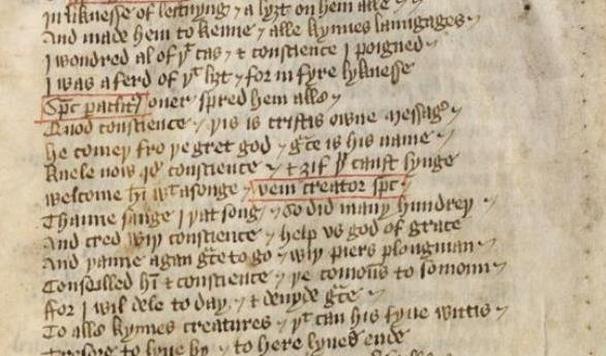 In liknesse of leittnyng / a lyȝt on hem alle /
And made hem to kenne / alle kynnes langages /
I wondred al of yͭ cas / & conscience I poigned /
I was aferd of yͭ lyȝt / for in fyre lyknesse
Sp̄c pactit9 ouer spred hem alle /
Quod conscience / yis is cristis owne messag9 /
he comey fro ye gret god / gͣce is his name /
knele now qd' conscience / & ȝif yͧ canst synge
welcome hī wͭ a songe / veni creator sp̄c /
Thanne sange I yat song / so did many hundrey /
And cred wiy conscience / help vs god of grace
And yanne agan gͣce to go / wiy piers plougman /
Conseilled hī & conscience / ye comoūs to somoun /
ffor I wil dele to day / & deuyde gͣce /
To alle kynnes creatures / yͭ can his fyue wittis /
Tresore to lyue by / to here lyues ende